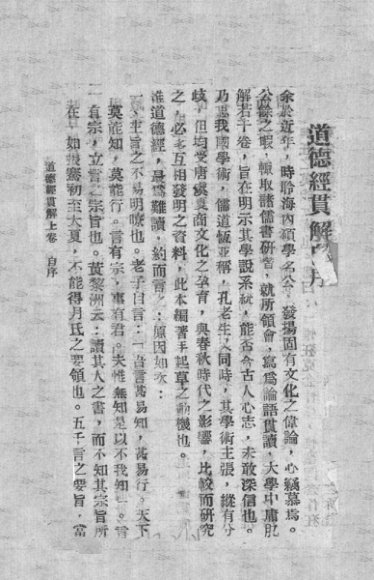 道德經貫解 序
余於近年，時聆海內碩學名公，發揚固有文化之偉論，心竊慕焉。
公餘之暇，輒取諸儒書研習，就所領會，寫爲論語貫讀，大學中庸貫
解若干卷，旨在明示其學說系統，能否合古人心志，未敢深信也。
乃思我國學術，儒道恆並稱，孔老生又同時，其學術主張，縱有分
歧，但均受唐虞夏商文化之孕育，與春秋時代之影響，比較而研究
之，必多互相發明之資料，此本編著手起草之動機也。
惟道德經，最爲難讀，約而言之：原因如次：
一、主旨之不易明瞭也。老子自言：「吾言甚易知，甚易行。天下
莫能知，莫能行。言有宗，事有君。夫惟無知是以不我知」。言
有宗，立言之宗旨也。黃黎洲云：讀其人之書，而不知其宗旨所
在，如張騫初至大夏，不能得月氏之要領也。五千言之要旨，當
道德經貫解上卷 自序